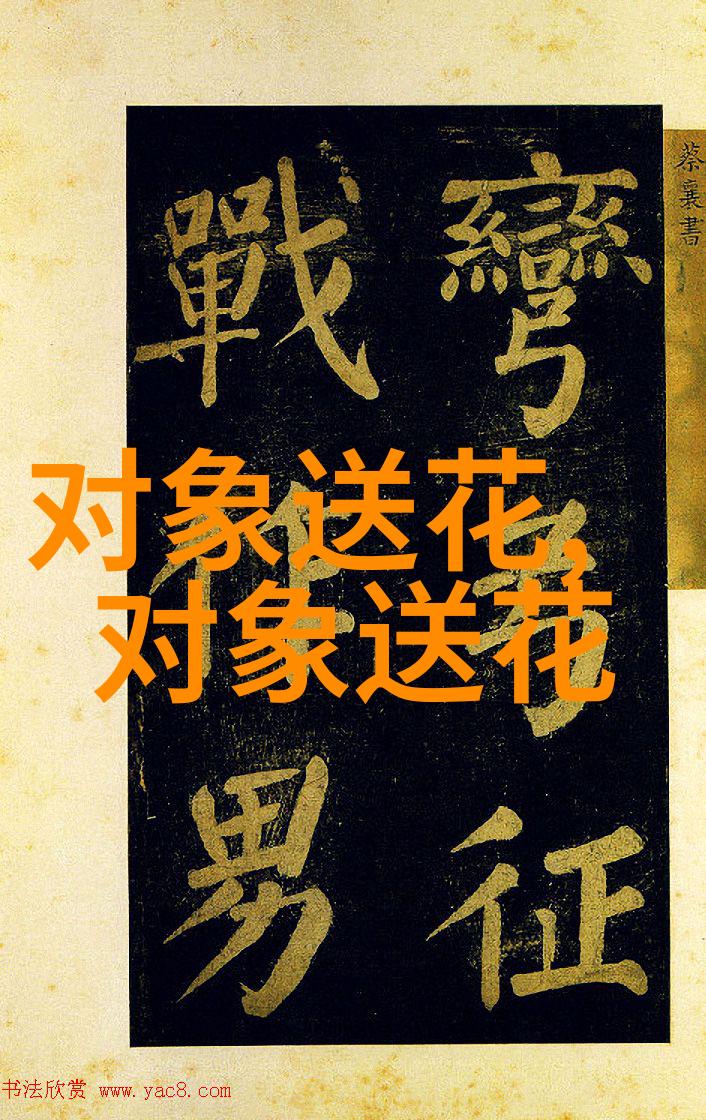 蔡襄書
彎弓征
戰作男
对象送花,
对象送花
书法欣赏 www.yac8.com